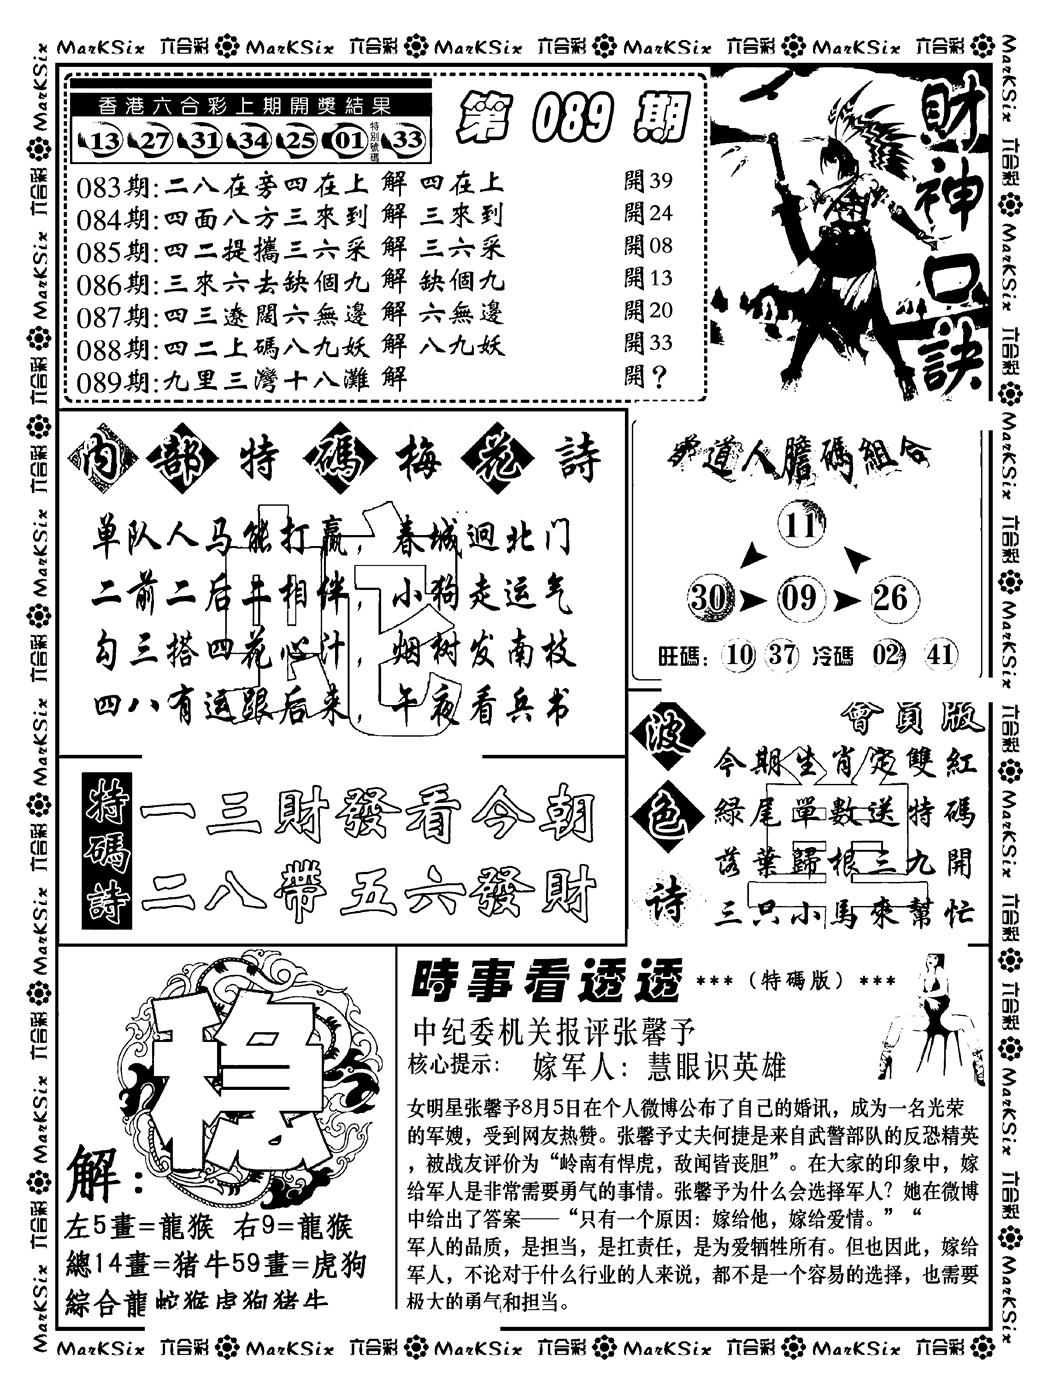 MarKSix 六合彩 MarKSix 六合彩 MarKSix 六合彩 MarKSix 六合彩 MarKSix 六合彩
香港六合彩上期開獎結果
13 27 31 34 25 01 特別號碼 33
第 089 期
083期:二八在旁四在上 解 四在上 開39
084期:四面八方三來到 解 三來到 開24
085期:四二提攜三六采 解 三六采 開08
086期:三來六去缺個九 解 缺個九 開13
087期:四三遼闊六無邊 解 六無邊 開20
088期:四二上碼八九妖 解 八九妖 開33
089期:九里三灣十八灘 解 開?
財神口訣
內部特碼梅花詩
单队人马能打赢，春城迴北门
二前二后牛相伴，小狗走运气
勾三搭四花心汁，烟树发南枝
四八有运跟后来，午夜看兵书
道人膽碼組合
11
30 09 26
旺碼: 10 37 冷碼 02 41
特碼詩
一三財發看今朝
二八帶五六發財
波色诗
會員版
今期生肖定雙紅
綠尾單數送特碼
落葉歸根三九開
三只小馬來幫忙
解:
左5畫=龍猴 右9=龍猴
總14畫=猪牛59畫=虎狗
綜合龍蛇猴虎狗猪牛
時事看透透 ***（特碼版）***
中纪委机关报评张馨予
核心提示: 嫁军人：慧眼识英雄
女明星张馨予8月5日在个人微博公布了自己的婚讯，成为一名光荣
的军嫂，受到网友热赞。张馨予丈夫何捷是来自武警部队的反恐精英
，被战友评价为“岭南有悍虎，敌闻皆丧胆”。在大家的印象中，嫁
给军人是非常需要勇气的事情。张馨予为什么会选择军人？她在微博
中给出了答案——“只有一个原因：嫁给他，嫁给爱情。”“
军人的品质，是担当，是扛责任，是为爱牺牲所有。但也因此，嫁给
军人，不论对于什么行业的人来说，都不是一个容易的选择，也需要
极大的勇气和担当。
MarKSix 六合彩 MarKSix 六合彩 MarKSix 六合彩 MarKSix 六合彩 MarKSix 六合彩